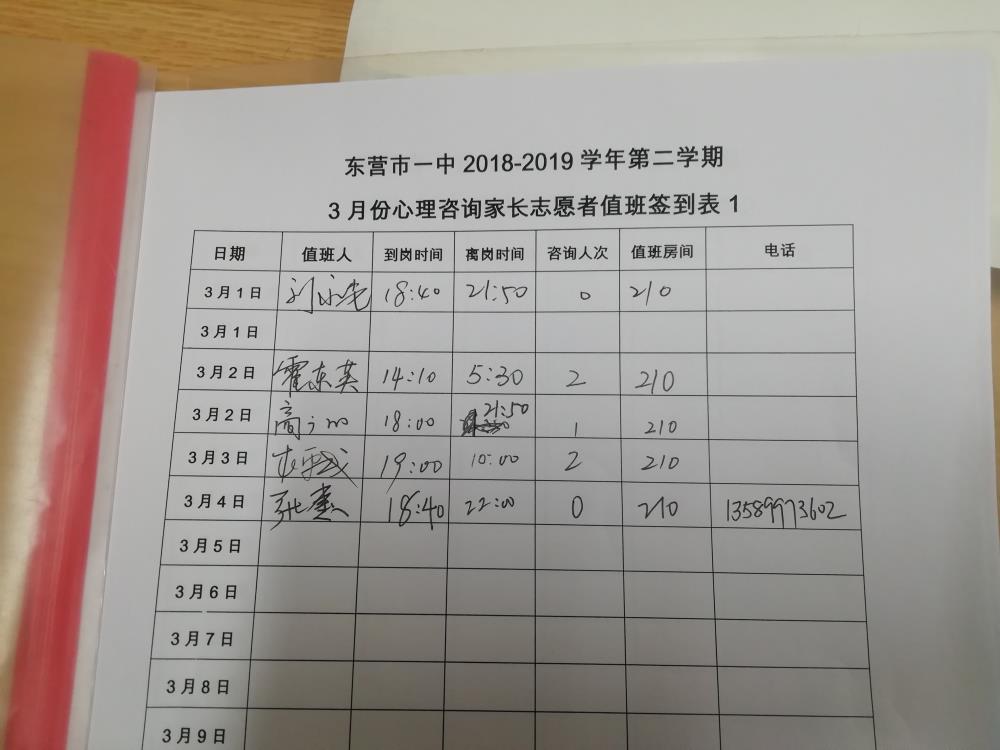 东营市一中 2018-2019 学年第二学期
3 月份心理咨询家长志愿者值班签到表 1
日期 值班人 到岗时间 离岗时间 咨询人次 值班房间 电话
3 月 1 日 18:40 21:50 0 210
3 月 1 日
3 月 2 日 霍东英 14:10 5:30 2 210
3 月 2 日 18:00 21:50 1 210
3 月 3 日 19:00 10:00 2 210
3 月 4 日 18:40 22:00 0 210 13589973602
3 月 5 日
3 月 6 日
3 月 7 日
3 月 8 日
3 月 9 日